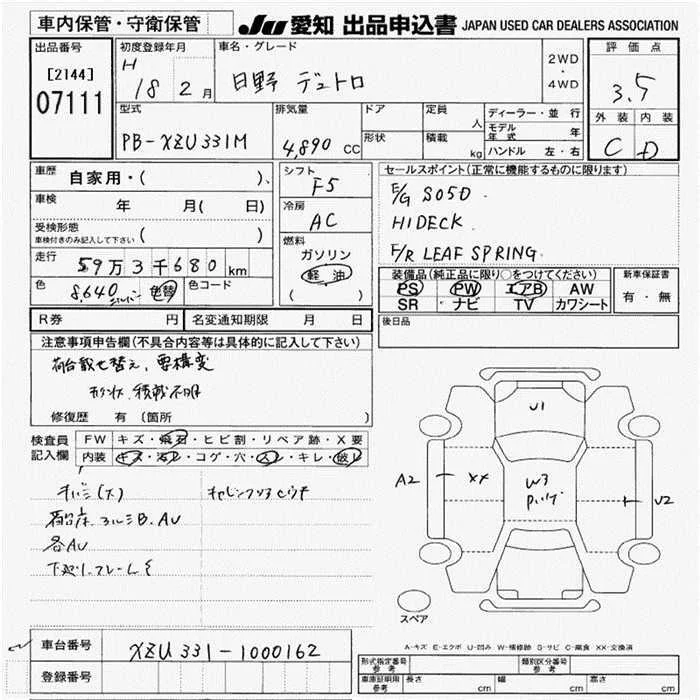 車内保管・守衛保管 JU 愛知 出品申込書 JAPAN USED CAR DEALERS ASSOCIATION
出品番号 初度登録年月 車名・グレード 2WD・4WD 評価点
[2144] H 18 2月 日野 デュトロ 3.5
07111
型式 排気量 ドア 定員 人 ディーラー・並行 外装 内装
PB-XZU331M 4,890 CC 形状 積載 kg モデル年式 年 C D
ハンドル 左・右
車歴 自家用・( )、 シフト F5 セールスポイント(正常に機能するものに限ります)
車検 年 月( 日) 冷房 AC E/G S05D
受検形態 ( ) HIDECK
車検付きのみ記入して下さい 燃料 ガソリン F/R LEAF SPRING
走行 59万3千680km 軽油 装備品(純正品に限り○をつけてください) 新車保証書
色 8,640 色替 色コード ( ) PS PW エアB AW 有・無
SR ナビ TV カワシート
R券 円 名変通知期限 月 日 後日品
注意事項申告欄(不具合内容等は具体的に記入して下さい)
荷台載せ替え、要構変
積載不明
修復歴 有 (箇所 )
検査員記入欄 FW キズ・飛石・ヒビ割・リペア跡・X要
内装 キズ・汚レ・コゲ・穴・スレ・キレ・破レ
U1
A2 XX W3 U2
荷台床、アルミB、AU
各AU
スペア
A-キズ E-エクボ U-凹み W-補修跡 S-サビ C-腐食 XX-交換済
車台番号 XZU331-1000162
登録番号
形式指定番号 参考 類別区分番号 参考
車庫証明用 参考 長さ cm 幅 cm 高さ cm